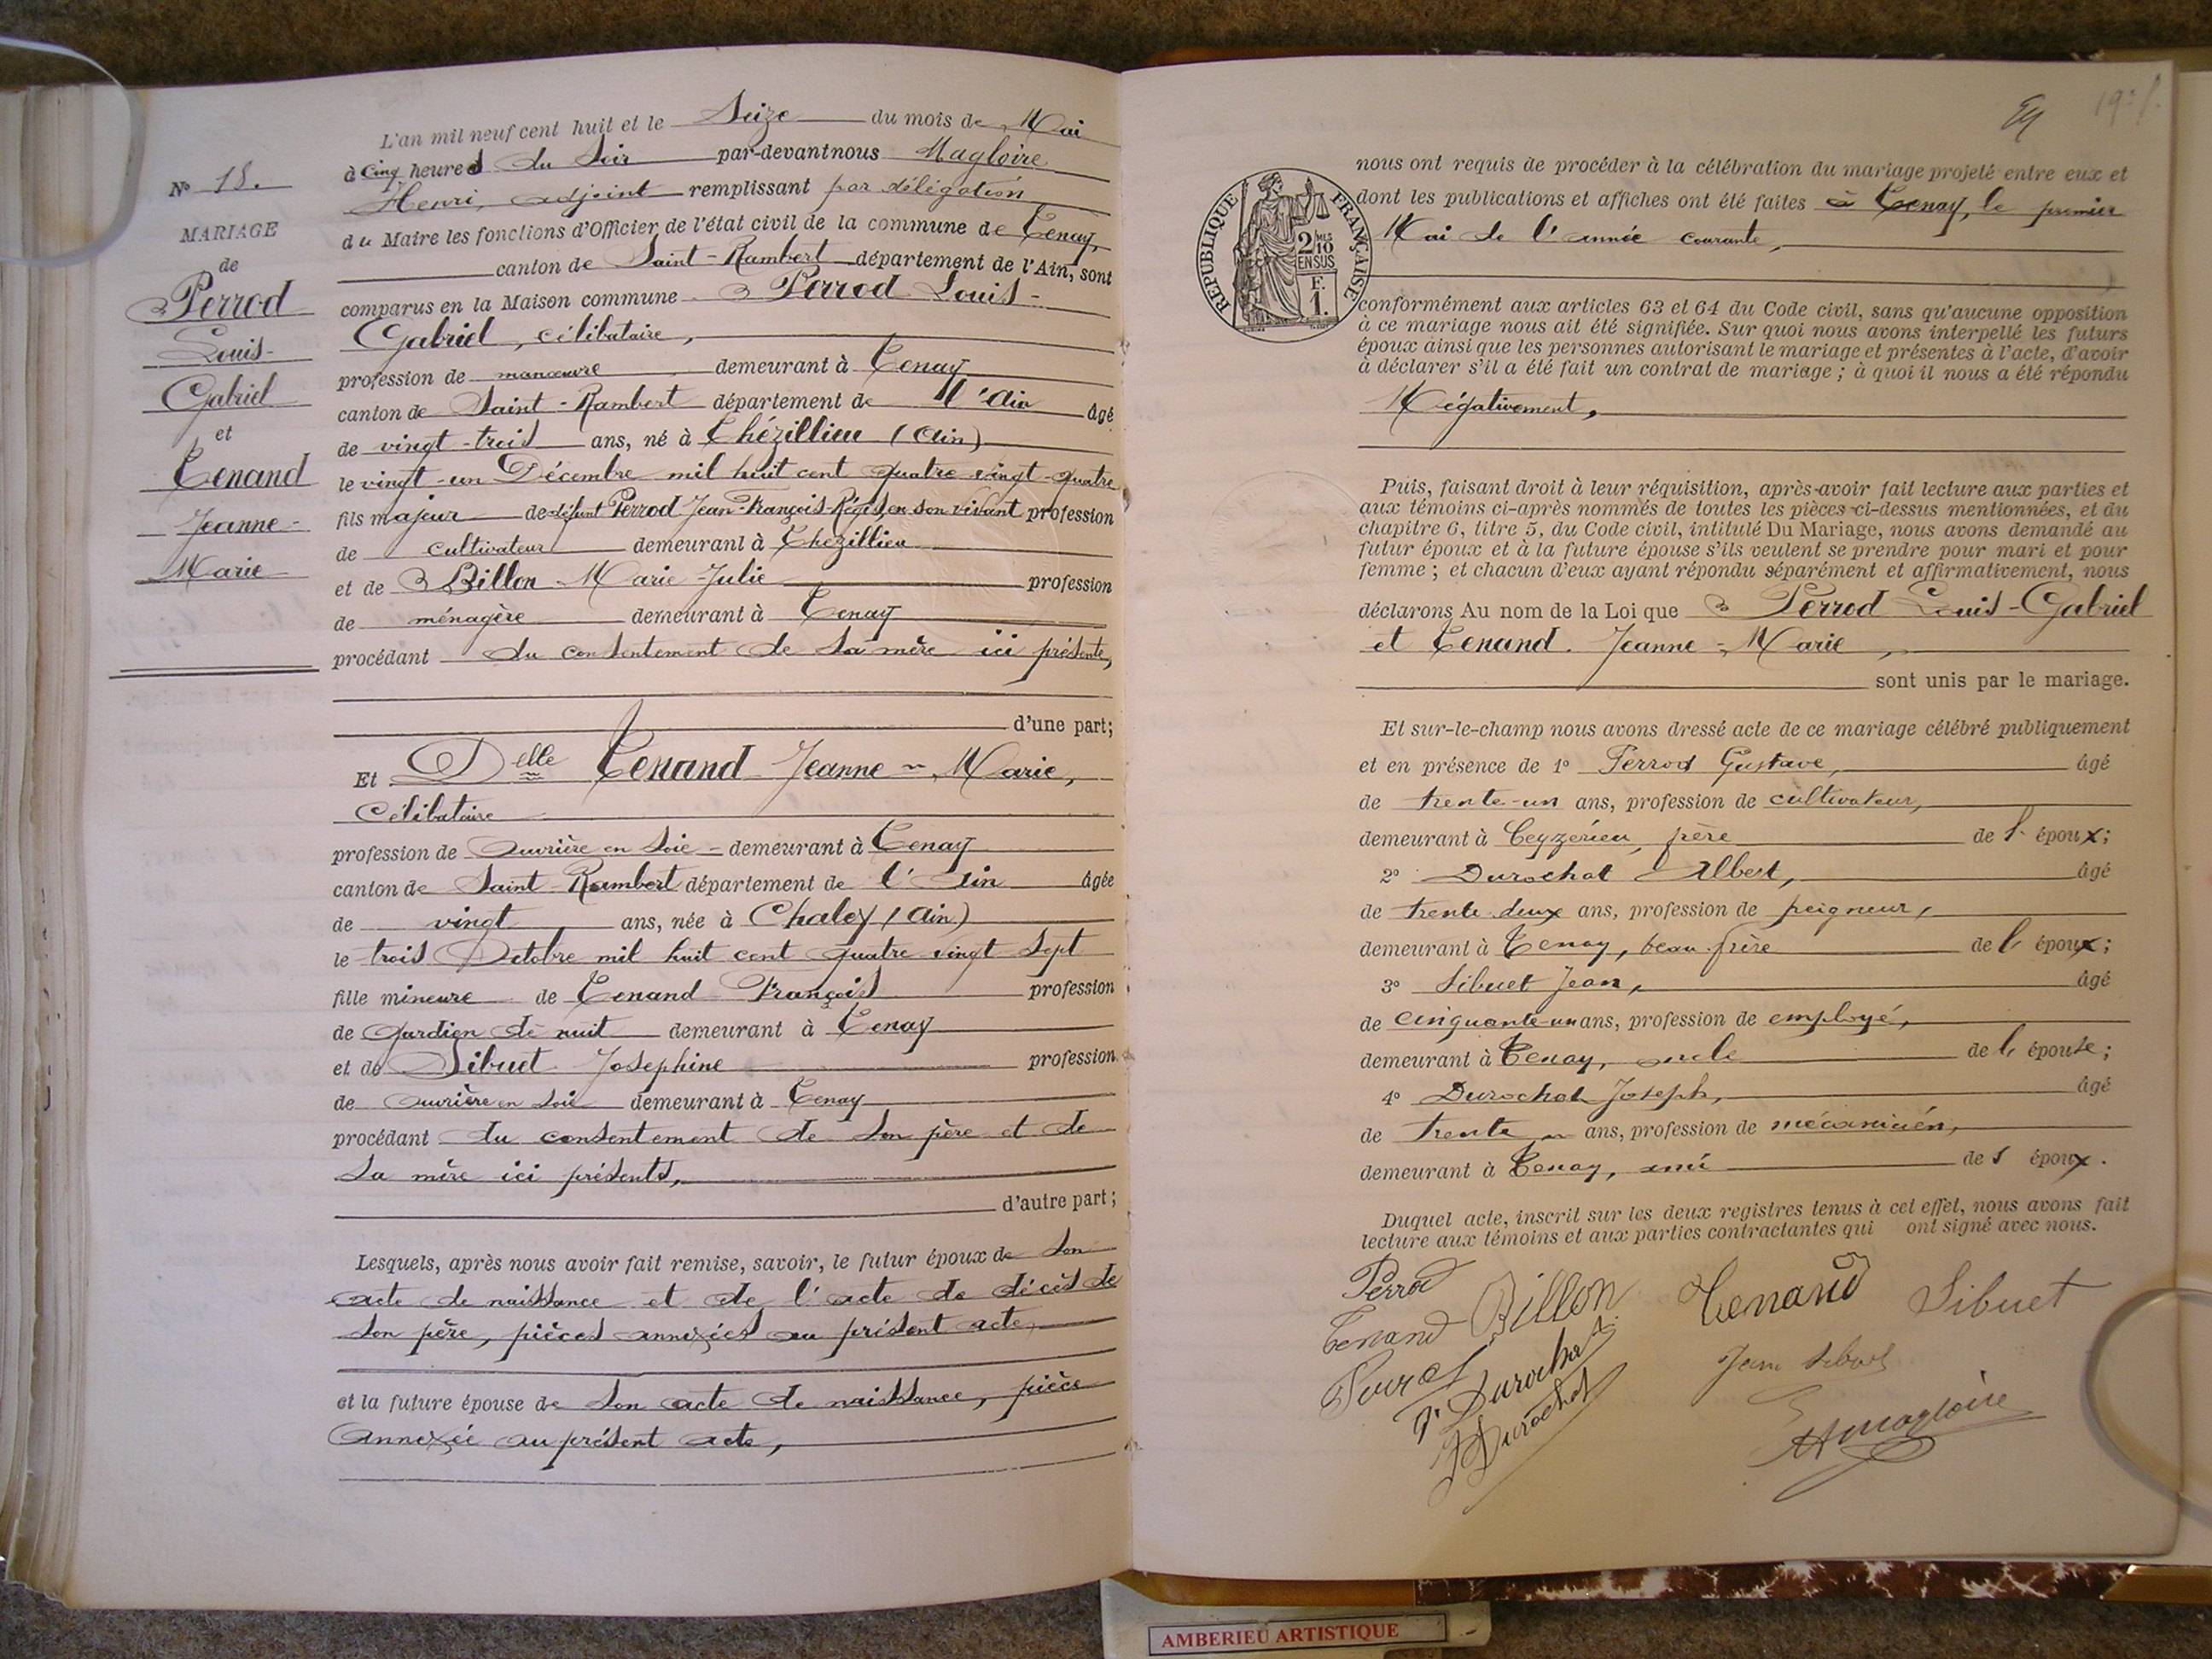 L'an mil neuf cent huit et le Seize du mois de Mai
à cinq heures du Soir par-devant nous Magloire
Henri, adjoint remplissant par délégation
du Maire les fonctions d'Officier de l'état civil de la commune de Tenay,
canton de Saint-Rambert département de l'Ain, sont
comparus en la Maison commune Perrod Louis-
Gabriel, célibataire,
profession de manœuvre demeurant à Tenay
canton de Saint-Rambert département de l'Ain âgé
de vingt-trois ans, né à Thézillieu (Ain)
le vingt-un Décembre mil huit cent quatre vingt-quatre
fils majeur de défunt Perrod Jean-François-Régis, en son vivant profession
de cultivateur demeurant à Thézillieu
et de Billon Marie-Julie profession
de ménagère demeurant à Tenay
procédant du consentement de sa mère ici présente,
d'une part;
Et Delle Tenand Jeanne-Marie,
Célibataire
profession de Ouvrière en Soie demeurant à Tenay
canton de Saint-Rambert département de l'Ain âgée
de vingt ans, née à Chaley (Ain)
le trois Octobre mil huit cent quatre vingt sept
fille mineure de Tenand François profession
de Gardien de nuit demeurant à Tenay
et de Sibuet Joséphine profession
de Ouvrière en soie demeurant à Tenay
procédant du consentement de son père et de
sa mère ici présents,
d'autre part;
Lesquels, après nous avoir fait remise, savoir, le futur époux de son
acte de naissance et de l'acte de décès de
son père, pièces annexées au présent acte,
et la future épouse de son acte de naissance, pièce
annexée au présent acte,
N° 18.
MARIAGE
de
Perrod
Louis-
Gabriel
et
Tenand
Jeanne-
Marie
19
nous ont requis de procéder à la célébration du mariage projeté entre eux et
dont les publications et affiches ont été faites à Tenay, le premier
Mai de l'année courante,
RÉPUBLIQUE FRANÇAISE
2 MES
10
EN SUS
F.
1.
conformément aux articles 63 et 64 du Code civil, sans qu'aucune opposition
à ce mariage nous ait été signifiée. Sur quoi nous avons interpellé les futurs
époux ainsi que les personnes autorisant le mariage et présentes à l'acte, d'avoir
à déclarer s'il a été fait un contrat de mariage; à quoi il nous a été répondu
Négativement,
Puis, faisant droit à leur réquisition, après avoir fait lecture aux parties et
aux témoins ci-après nommés de toutes les pièces ci-dessus mentionnées, et du
chapitre 6, titre 5, du Code civil, intitulé Du Mariage, nous avons demandé au
futur époux et à la future épouse s'ils veulent se prendre pour mari et pour
femme; et chacun d'eux ayant répondu séparément et affirmativement, nous
déclarons Au nom de la Loi que Perrod Louis-Gabriel
et Tenand Jeanne-Marie,
sont unis par le mariage.
Et sur-le-champ nous avons dressé acte de ce mariage célébré publiquement
et en présence de 1° Perrod Gustave, âgé
de trente-un ans, profession de cultivateur,
demeurant à Ceyzérieu, frère de l' époux;
2° Durochat Albert, âgé
de trente-deux ans, profession de peigneur,
demeurant à Tenay, beau-frère de l' époux;
3° Sibuet Jean, âgé
de cinquante-un ans, profession de employé,
demeurant à Tenay, oncle de l' épouse;
4° Durochat Joseph, âgé
de trente ans, profession de mécanicien,
demeurant à Tenay, ami de l' époux.
Duquel acte, inscrit sur les deux registres tenus à cet effet, nous avons fait
lecture aux témoins et aux parties contractantes qui ont signé avec nous.
Perrod Billon Tenand Sibuet
Tenand
Durochat
Durochat
HMagloire
AMBERIEU ARTISTIQUE